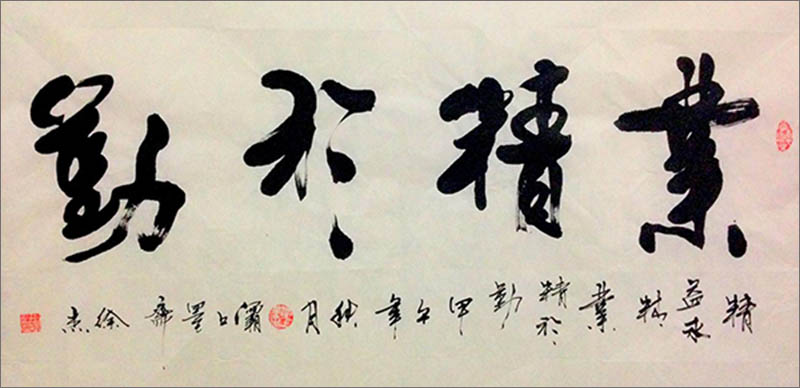 業精於勤
精益求精業精於勤甲午年秋月口墨斋徐杰